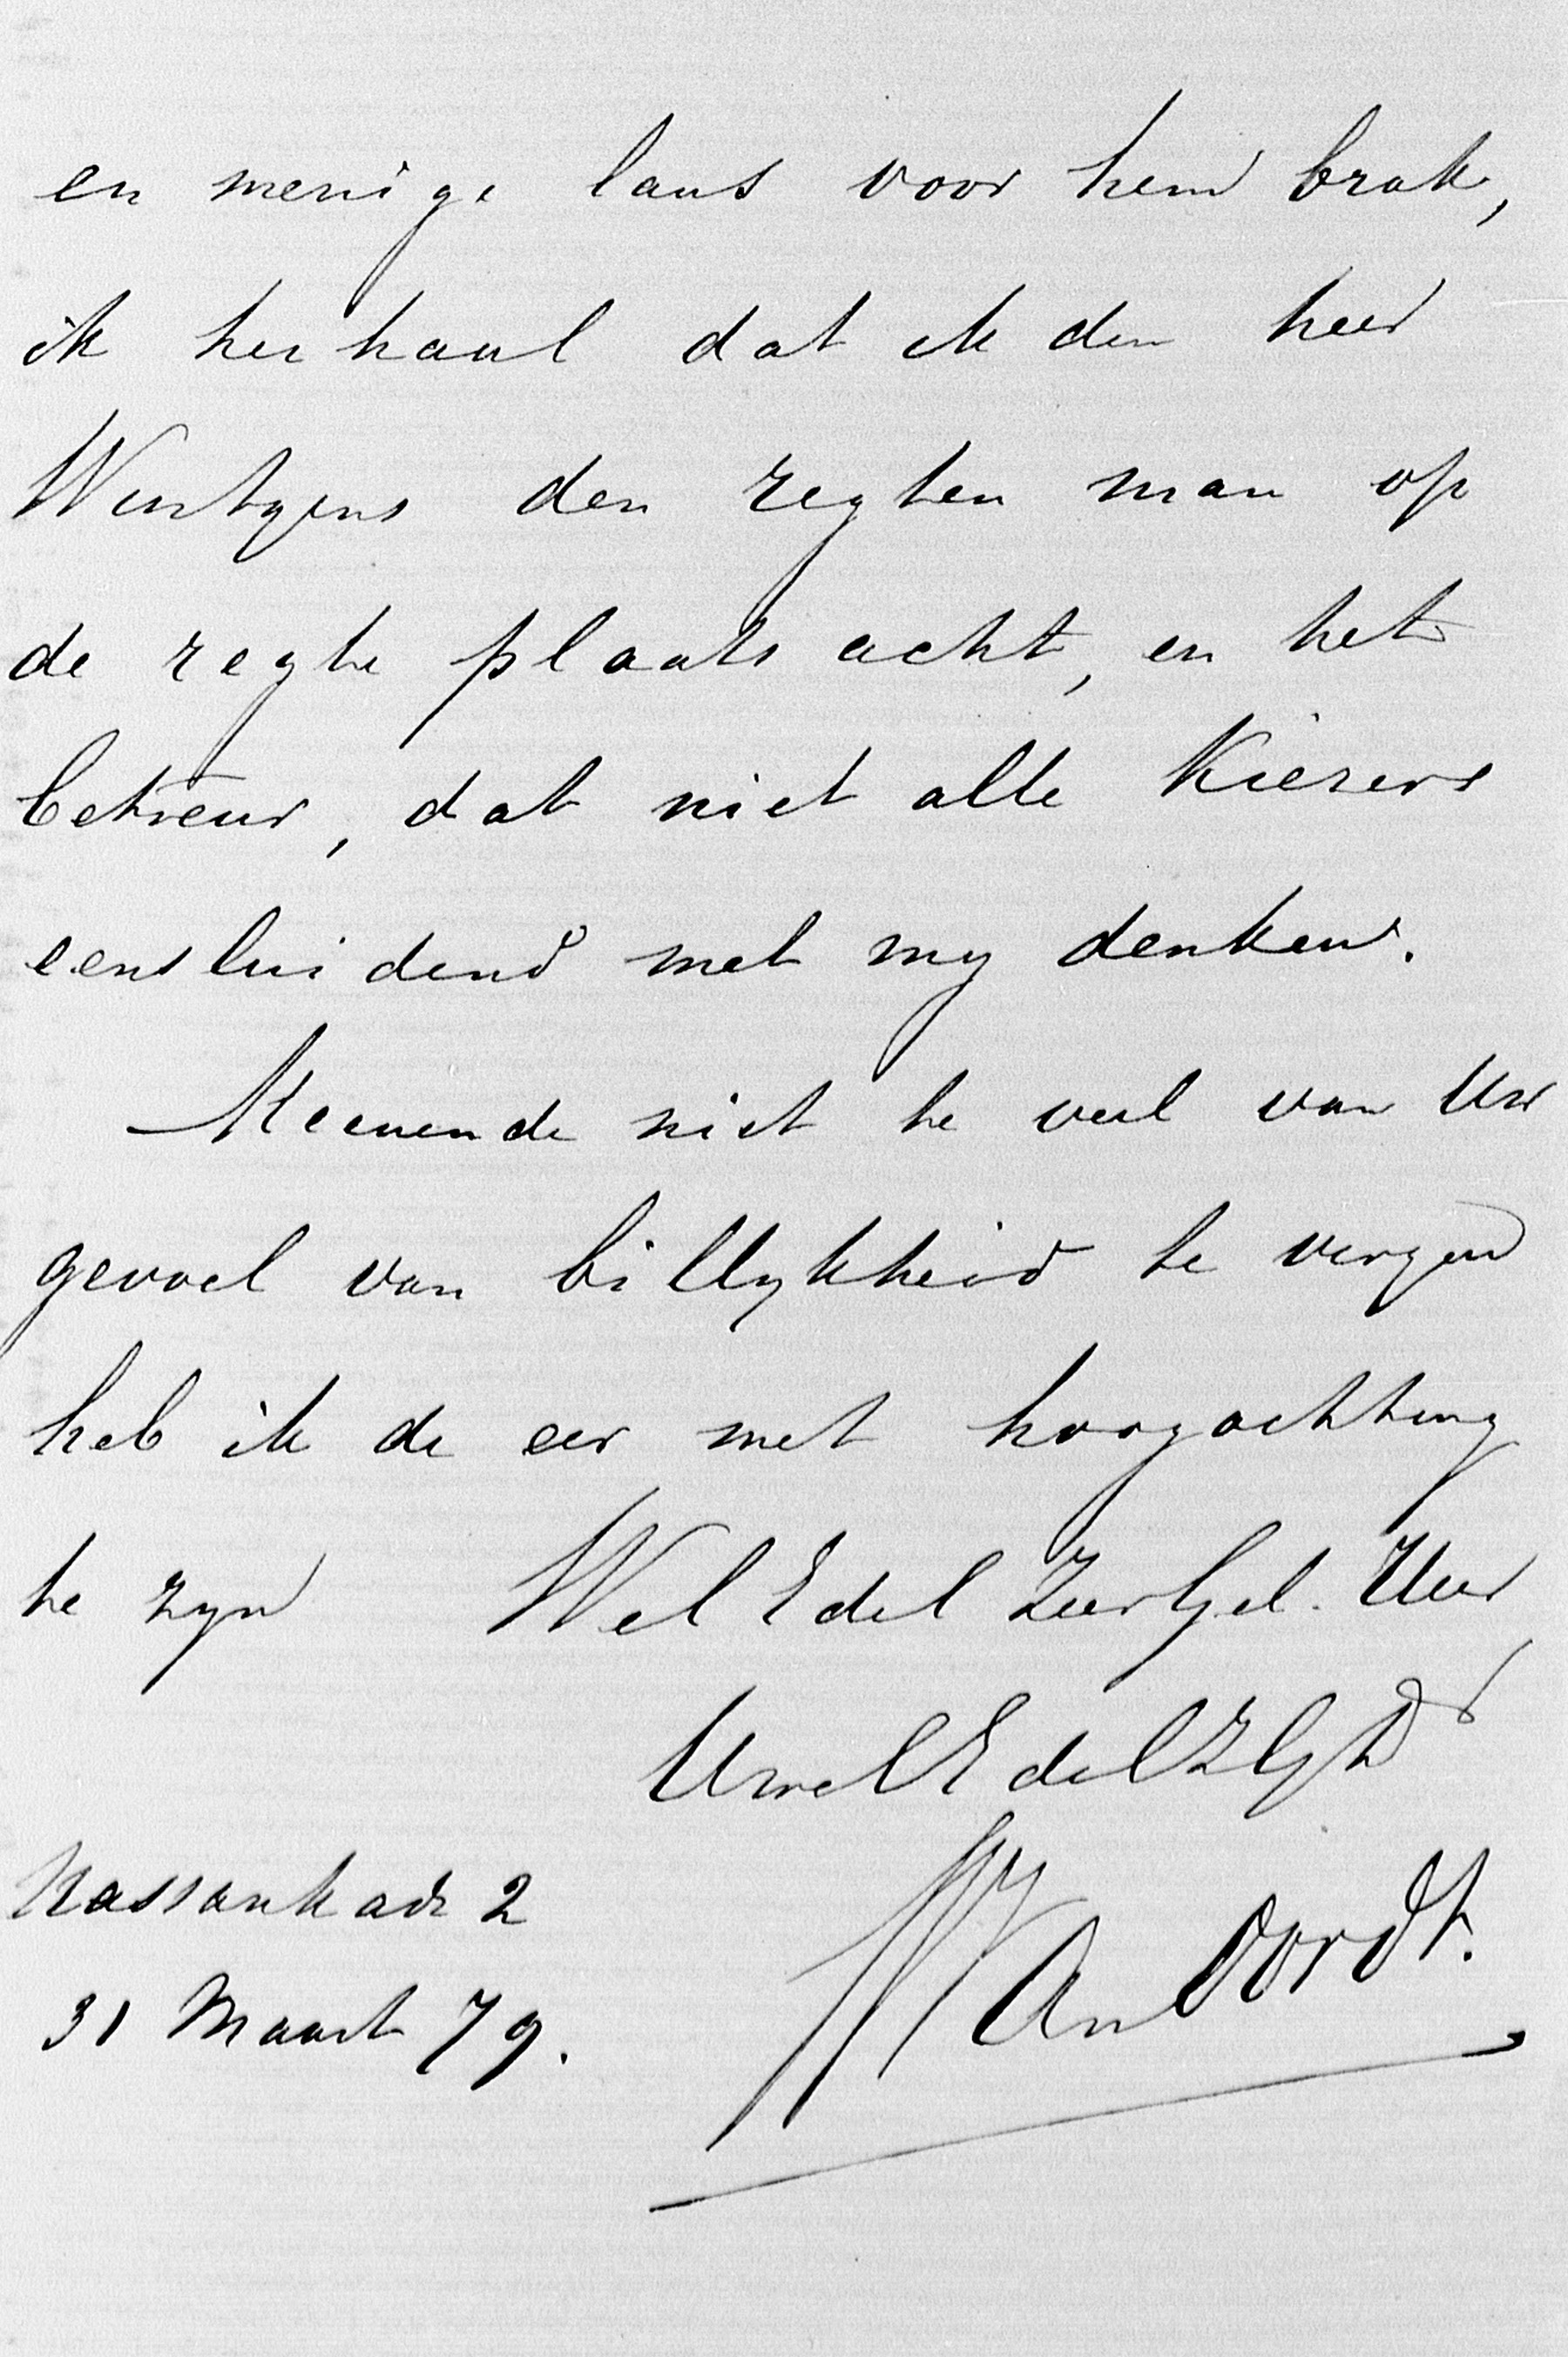 en menige lans voor hem brak,
ik herhaal dat ik den heer
Wintgens den regten man op
de regte plaats acht, en het
betreur, dat niet alle Kiezers
eensluidend met my denken.
Meenende niet te veel van Uw
gevoel van billykheid te vergen
heb ik de eer met hoogachting
te zyn WelEdel ZeerGel. Heer
UwelEdelZGDr
Nassaukade 2
W Van Oordt.
31 Maart 79.